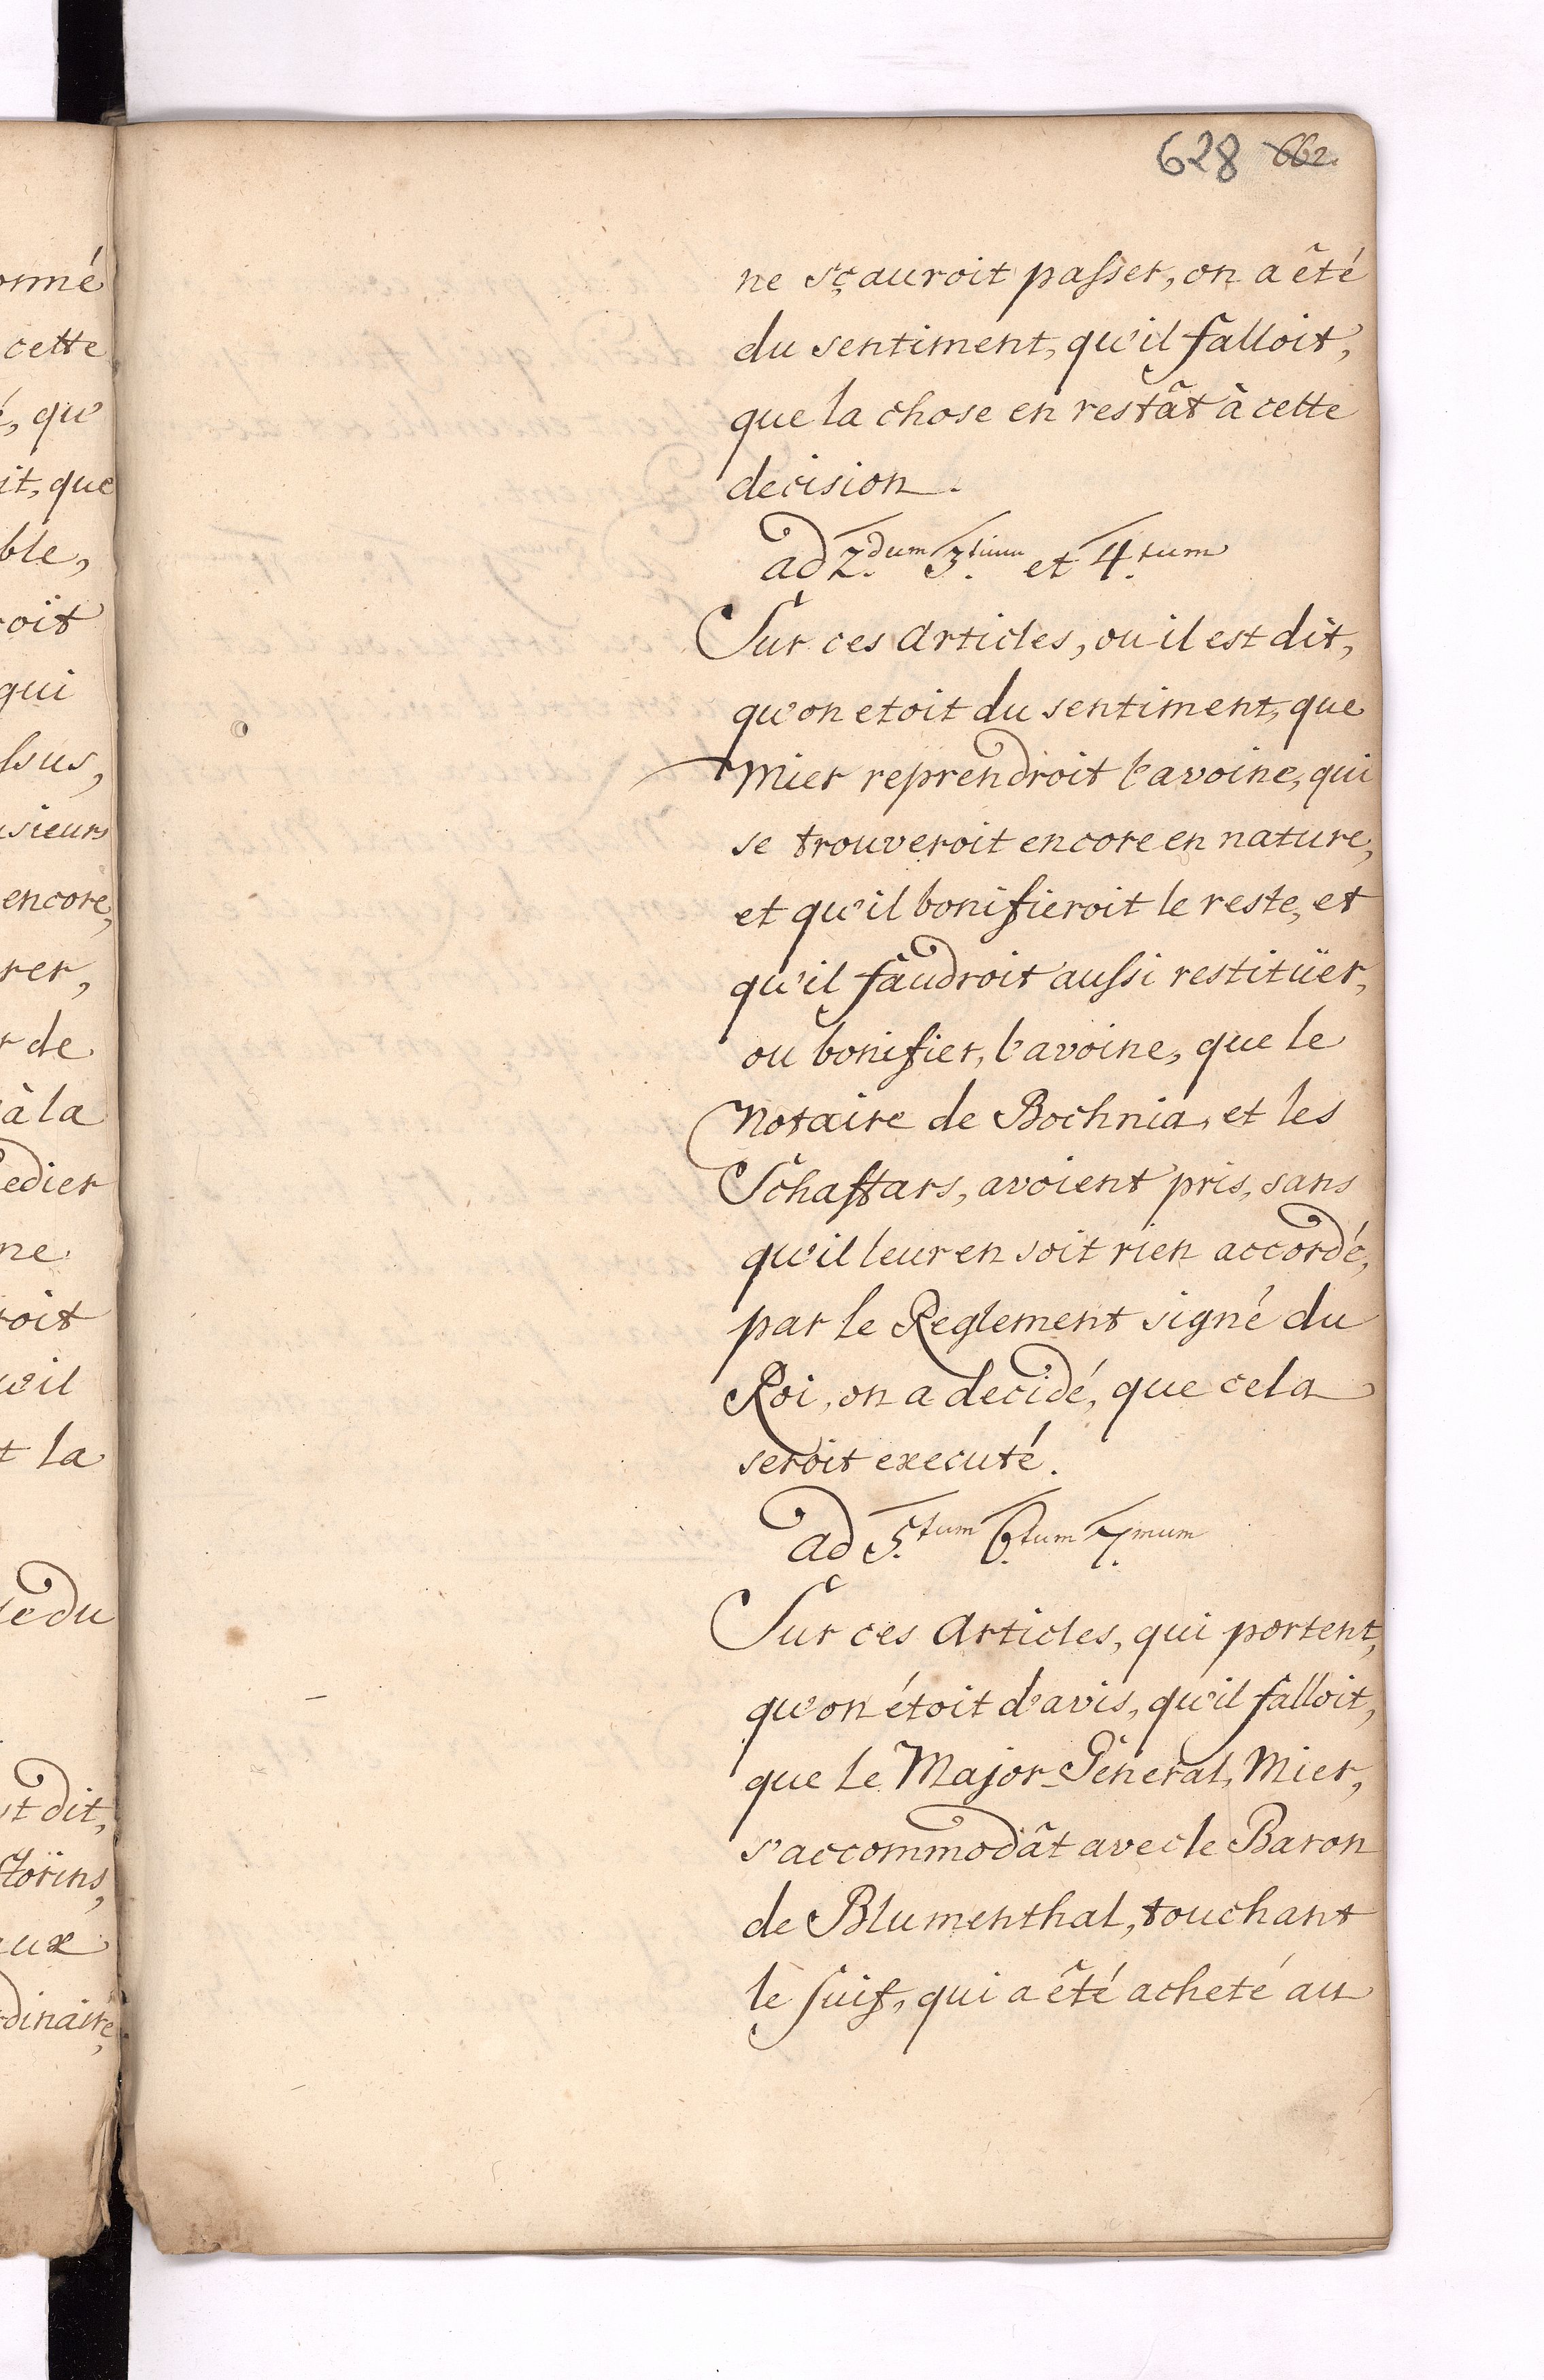 628 662.
ne sçauroit passer, on a êté
du sentiment, qu'il falloit,
que la chose en restât à cette
decision.
ad 2.dum 3.tium et 4.tum
Sur ces Articles, ou il est dit,
qu'on etoit du sentiment, que
Mier reprendroit l'avoine, qui
se trouveroit encore en nature,
et qu'il bonifieroit le reste, et
qu'il faudroit aussi restitüer,
ou bonifier, l'avoine, que le
Notaire de Bochnia, et les
Schaffars, avoient pris, sans
qu'il leur en soit rien accordé,
par le Reglement signé du
Roi, on a decidé, que cela
seroit executé.
ad 5.tum 6.tum 7.mum
Sur ces Articles, qui portent,
qu'on étoit d'avis, qu'il falloit,
que le Major-Général, Mier,
s'accommodât avec le Baron
de Blumenthal, touchant
le suif, qui a êté acheté au
onné
cette
é, qu'
it, que
ble,
roit
qui
ssus,
usieurs
encore,
rer,
r de
à la
edier
ne
roit
u'il
t la
le du
st dit,
florins,
eux
rdinaire,